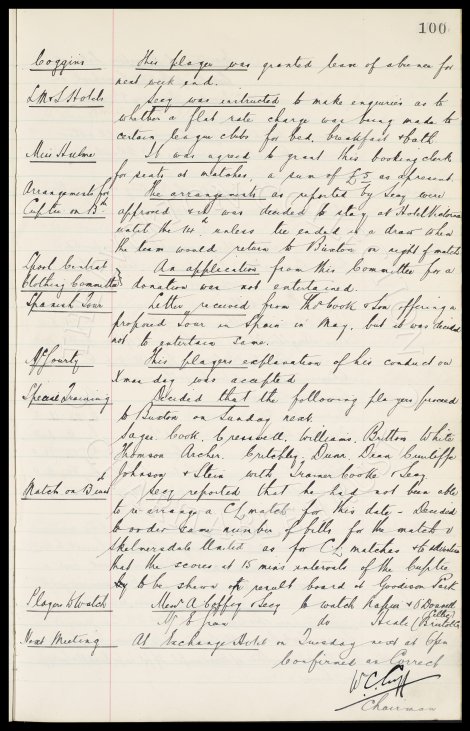 100
Coggins This player was granted leave of absence for
next week end.
L.M. & S. Hotels Secy was instructed to make enquiries as to
whether a flat rate charge was being made to
certain league clubs for bed, breakfast & bath.
Miss Hulme It was agreed to grant this booking clerk
for seats at matches, a sum of £5 as at present.
Arrangements for The arrangements as reported by Secy were
Cuptie on 13th approved & it was decided to stay at Hotel Victoria
until the 14th unless tie ended in a draw when
the team would return to Buxton on night of match
Lpool Central An application from this Committee for a
Clothing Committee donation was not entertained.
Spanish Tour Letter received from Thos Cook & Son offering a
proposed tour in Spain in May, but it was decided
not to entertain same.
McGourty This players explanation of his conduct on
Xmas day was accepted
Special Training Decided that the following players proceed
to Buxton on Sunday next.
Sagar Cook, Cresswell, Williams, Britton White
Thomson Archer, Critchley, Dunn, Dean Cunliffe
Johnson & Stein with Trainer Cooke & Secy.
Match on 23rd Secy reported that he had not been able
to re-arrange a CL match for this date - Decided
to order same number of bills for the match v
Skelmersdale United as for CL matches & to advertise
that the scores at 15 mins intervals of the Cuptie
to be shewn on result board at Goodison Park
Players to Watch Messrs A Coffey & Secy to watch & O'Donnell
(Celtic)
Mr E Green do Neale (Bristol C)
Next Meeting At Exchange Hotel on Tuesday next at 6pm
Confirmed as Correct
W.C. Cuff
Chairman